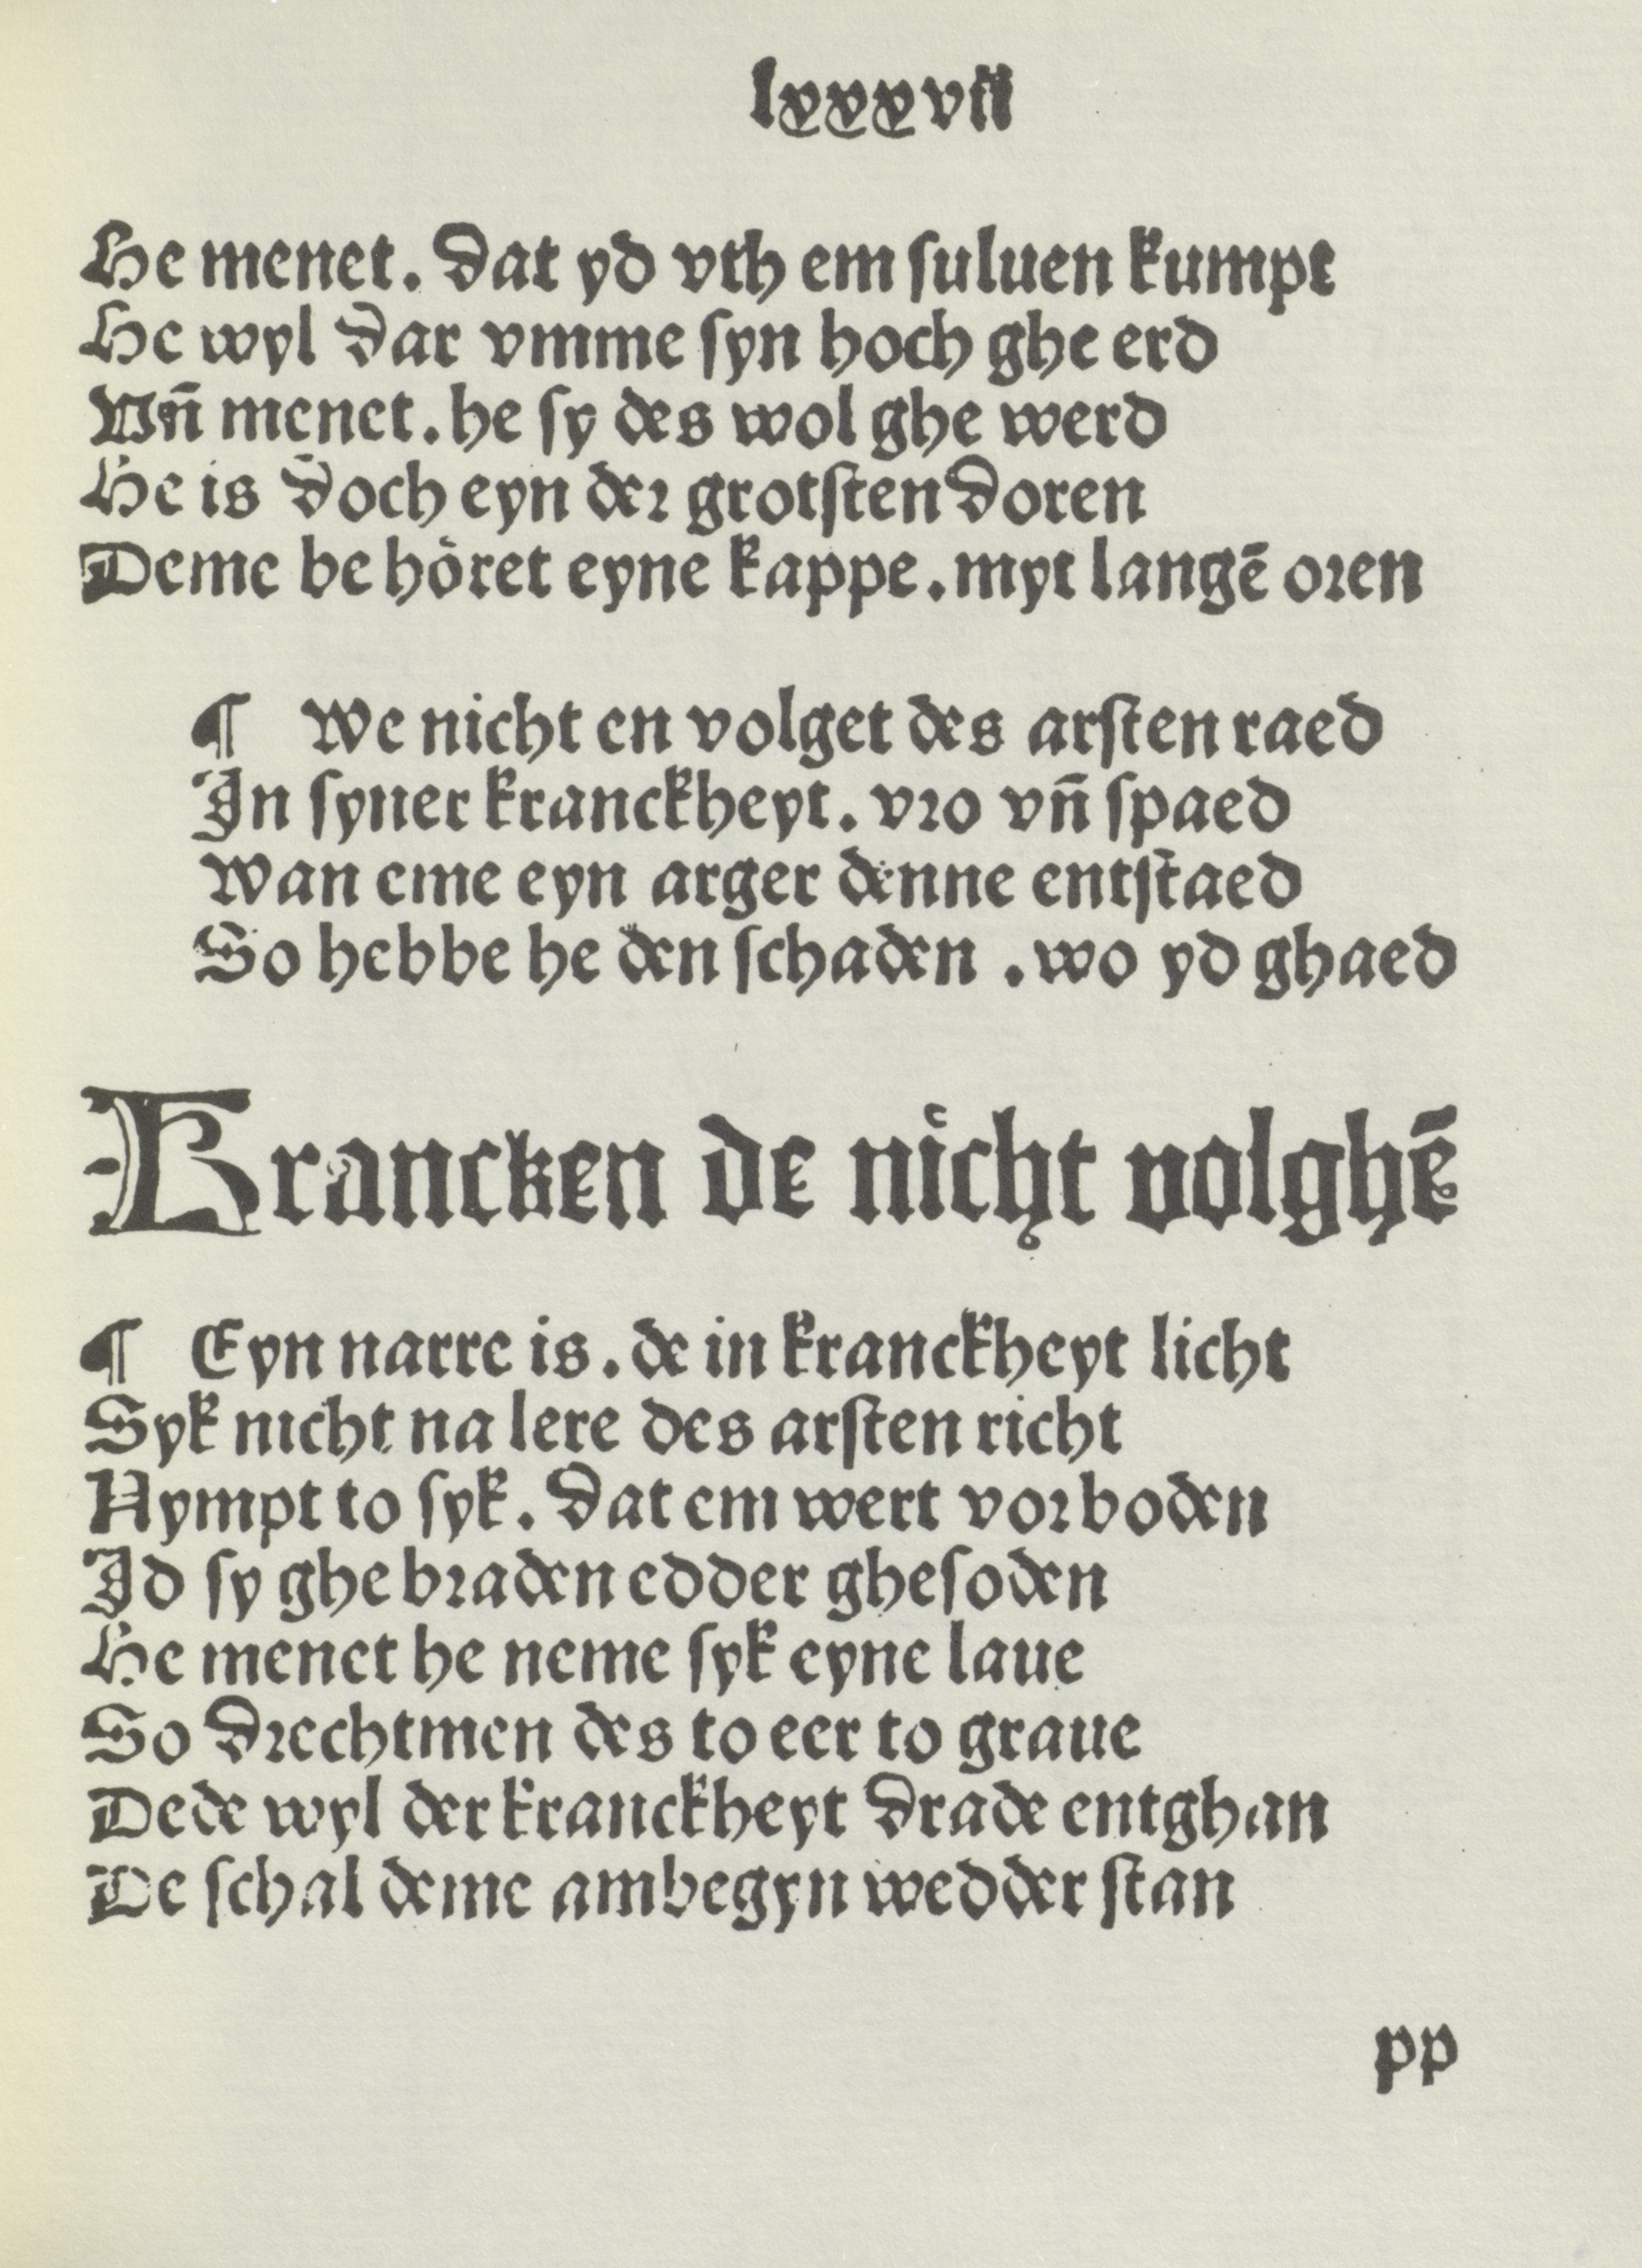 lxxxvii
He menet. dat yd vth em ſuluen kumpt
He wyl dar vmme ſyn hoch ghe erd
Vn̄ menet. he ſy des wol ghe werd
He is doch eyn deꝛ grotſten doren
Deme be hoͤret eyne kappe. myt langē oꝛen
¶ We nicht en volget des arſten raed
In ſyner kranckheyt. vꝛo vn̄ ſpaed
Wan eme eyn arger denne entſtaed
So hebbe he den ſchaden . wo yd ghaed
Krancken de nicht volghē
¶ Eyn narre is. de in kranckheyt licht
Syk nicht na lere des arſten richt
Nympt to ſyk. dat em wert voꝛboden
Id ſy ghe bꝛaden edder gheſoden
He menet he neme ſyk eyne laue
So dꝛechtmen des to eer to graue
Dede wyl der kranckheyt drade entghan
De ſchal deme ambegyn wedder ſtan
pp